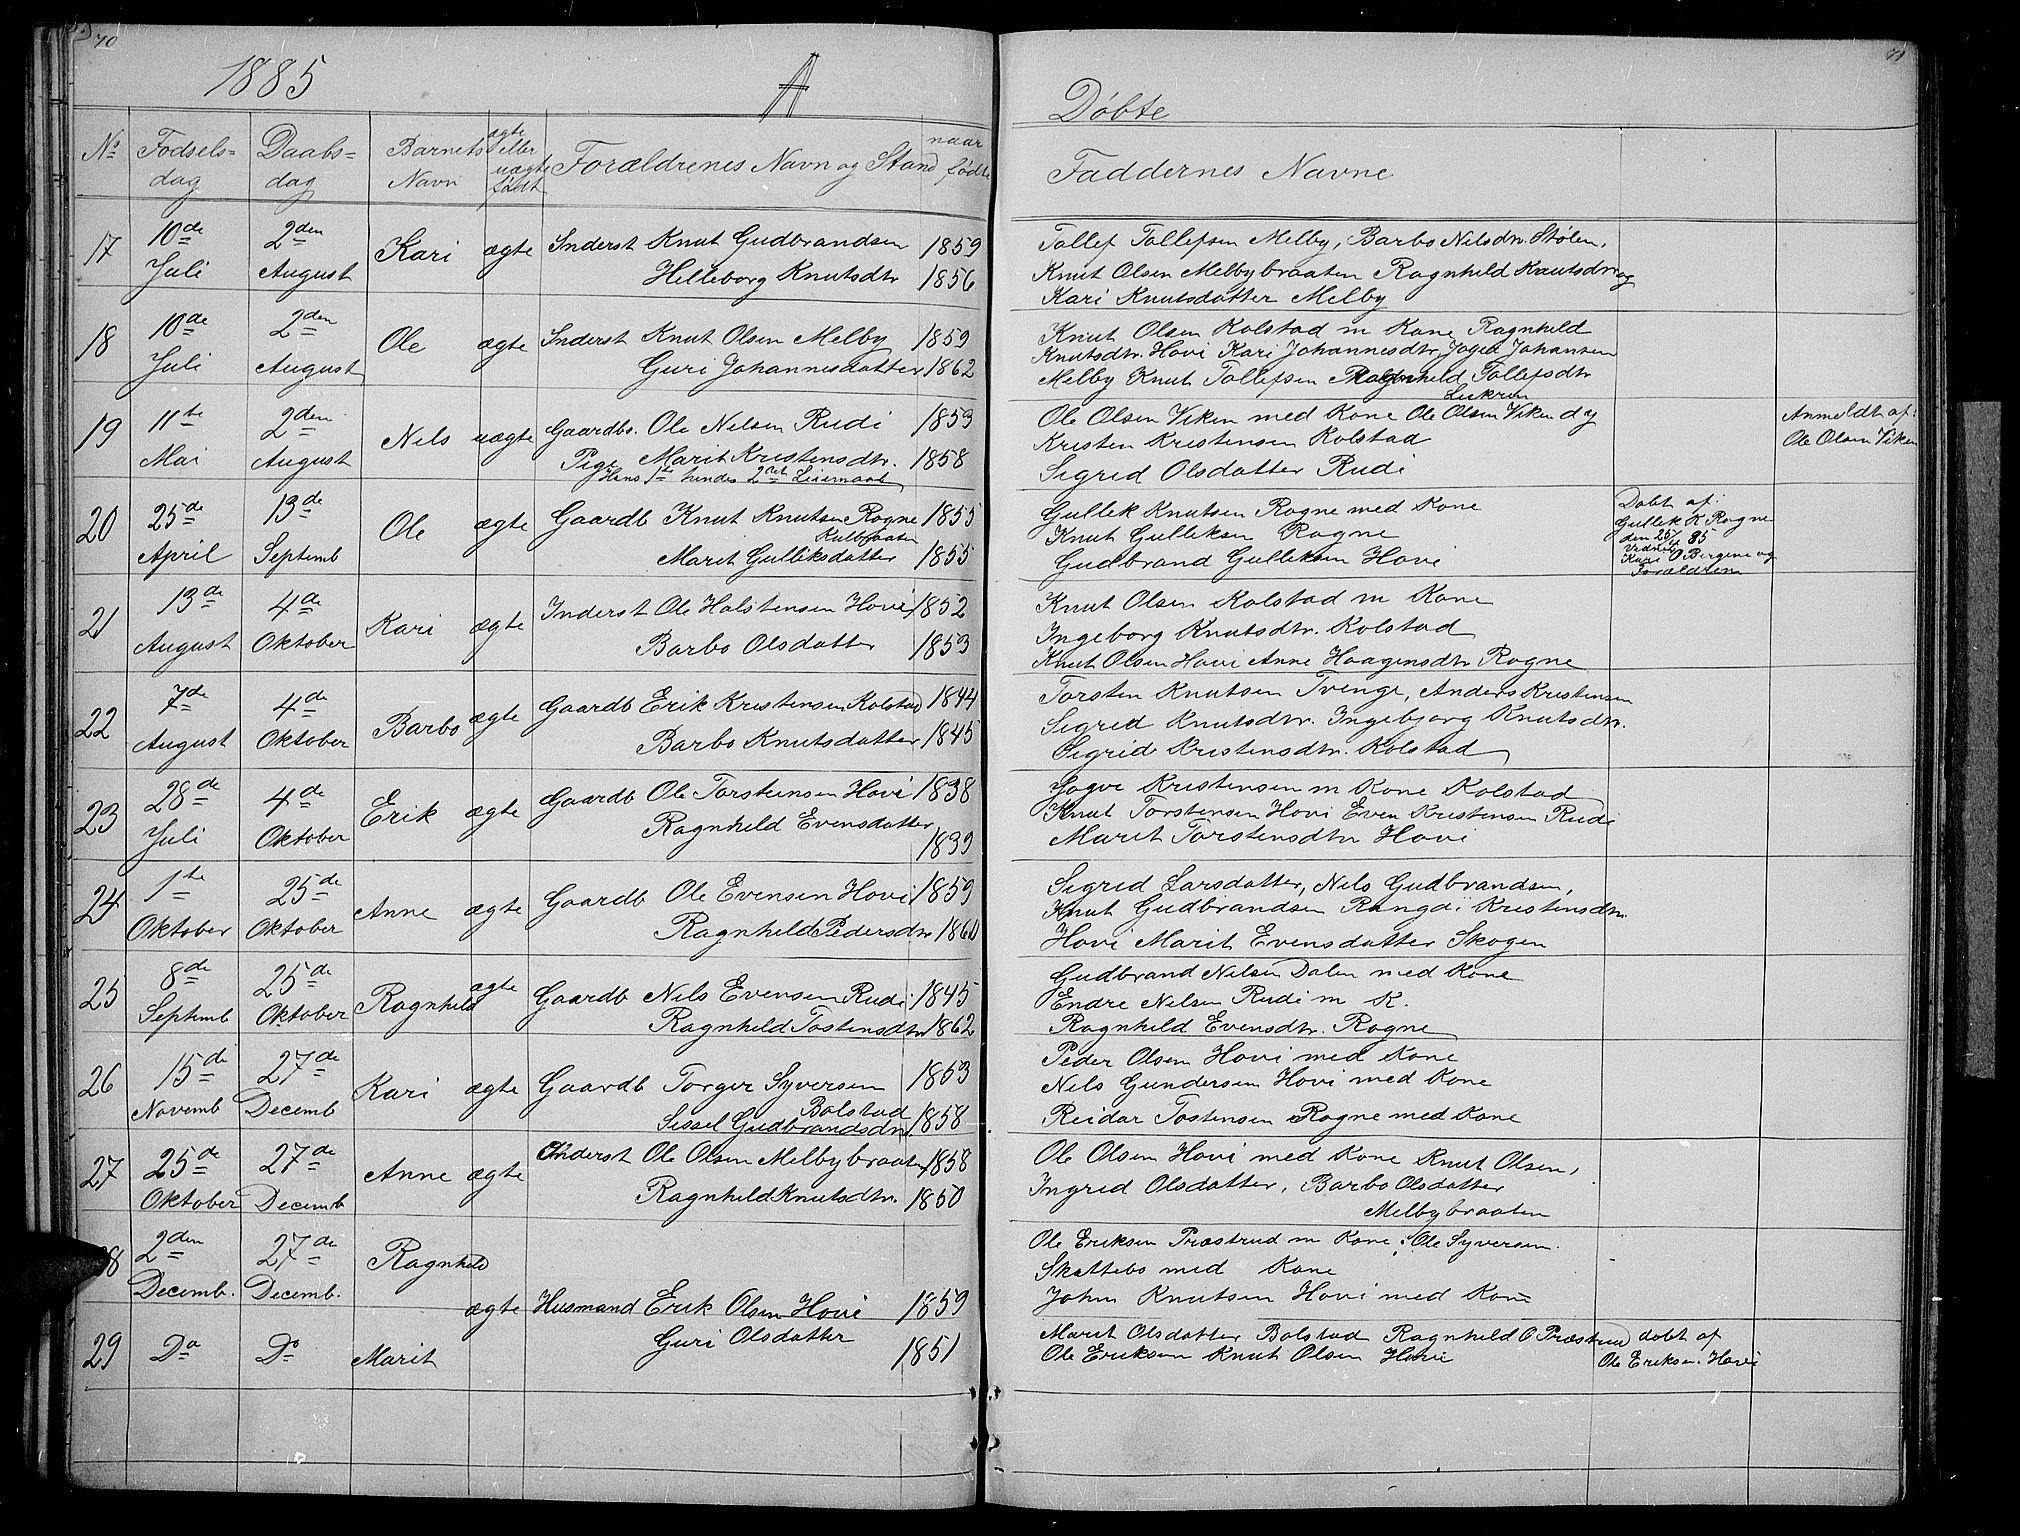 70
1885 A
No Fødsels= dag Daabs= dag Barnets Navn ægte eller uægte født Forældrenes Navn og Stand naar fødte
17 10de Juli 2den August Kari ægte Inderst Knut Gudbrandsen 1859
Helleborg Knutsdtr 1856
18 10de Juli 2den August Ole ægte Inderst Knut Olsen Melby 1859
Guri Johannesdatter 1862
19 11te Mai 2den August Nels uægte Gaardbs. Ole Nelsen Rudi 1859
Pige Marit Kristensdtr. 1858
Hans 1te hendes 2net Leiermaal
20 25de April 13de Septemb Ole ægte Gaardb Knut Knutsen Rogne 1855
Kulbraaten
Marit Gulliksdatter 1855
21 13de August 4de Oktober Kari ægte Inderst Ole Halstensen Hovi 1852
Barbo Olsdatter 1853
22 7de August 4de Oktober Barbo ægte Gaardb Erik Kristensen Kolstad 1844
Barbo Knutsdatter 1845
23 28de Juli 4de Oktober Erik ægte Gaardb Ole Torstensen Hovi 1838
Ragnheld Evensdatter 1839
24 1te Oktober 25de Oktober Anne ægte Gaardb Ole Evensen Hovi 1859
Ragnheld Pedersdtr 1860
25 8de Septemb 25de Oktober Ragnheld ægte Gaardb Nils Evensen Rudi 1845
Ragnheld Tostensdtr 1862
26 15de Novemb 27de Decemb Kari ægte Gaardb Torger Syversen 1853
Bolstad
Sissel Gudbrandsdtr. 1858
27 25de Oktober 27de Decemb Anne ægte Inderst Ole Olsen Melbybraaten 1858
Ragnheld Knutsdtr. 1850
28 2den Decemb. 27de Decemb. Ragnheld
ægte Husmand Erik Olsen Hovi 1859
29 Do Do Marit Guri Olsdatter 1851
71
Døbte
Faddernes Navne
Tollef Tollefsen Melby, Barbo Nilsdtr. Stølen,
Knut Olsen Melbybraaten Ragnheld Knutsdtr og
Kari Knutsdatter Melby
Knut Olsen Kolstad m Kone Ragnheld
Knutsdtr. Hovi Kari Johannesdtr, Joger Johansen
Melby Knut Tollefsen Ragnheld Tollefsdtr
Ole Olsen Viken med Kone Ole Olsen Viken d y
Kristen Kristensen Kolstad
Sigrid Olsdatter Rudi
Anmeldt af:
Ole Olsen Viken
Gullek Knutsen Rogne med Kone
Knut Gulleksen Rogne
Gudbrand Gulleksen Hovi
Døbt af:
Gullek K Rogne
den 25/4 85
Vidner
Kari O Bergene og
Forældrene
Knut Olsen Kolstad m Kone
Ingeborg Knutsdtr. Kolstad
Knut Olsen Hovi Anne Haagensdtr Rogne
Torsten Knutsen Tvenge, Anders Kristensen
Sigrid Knutsdtr. Ingebjorg Knutsdtr.
Sigrid Kristensdtr. Kolstad
Joger Kristensen m Kone Kolstad
Knut Torstensen Hovi Even Kristensen Rudi
Marit Torstensdtr Hovi
Sigrid Larsdatter, Nils Gudbrandsen,
Knut Gudbrandsen Rangdi Kristensdtr.
Hovi Marit Evensdatter Skogen
Gudbrand Nilsen Dalen med Kone
Endre Nelsen Rudi m K.
Ragnheld Evensdtr. Rogne
Peder Olsen Hovi med Kone
Nils Gundersen Hovi med Kone
Reidar Tostensen Rogne med Kone
Ole Olsen Hovi med Kone Knut Olsen,
Ingrid Olsdatter, Barbo Olsdatter
Melbybraaten
Ole Eriksen Præstrud m Kone, Ole Syversen.
Skattebo med Kone
John Knutsen Hovi med Kone
Marit Olsdatter Bolstad Ragnheld O Præstrud
Ole Eriksen Knut Olsen Hovi
døbt af
Ole Eriksen Hovi